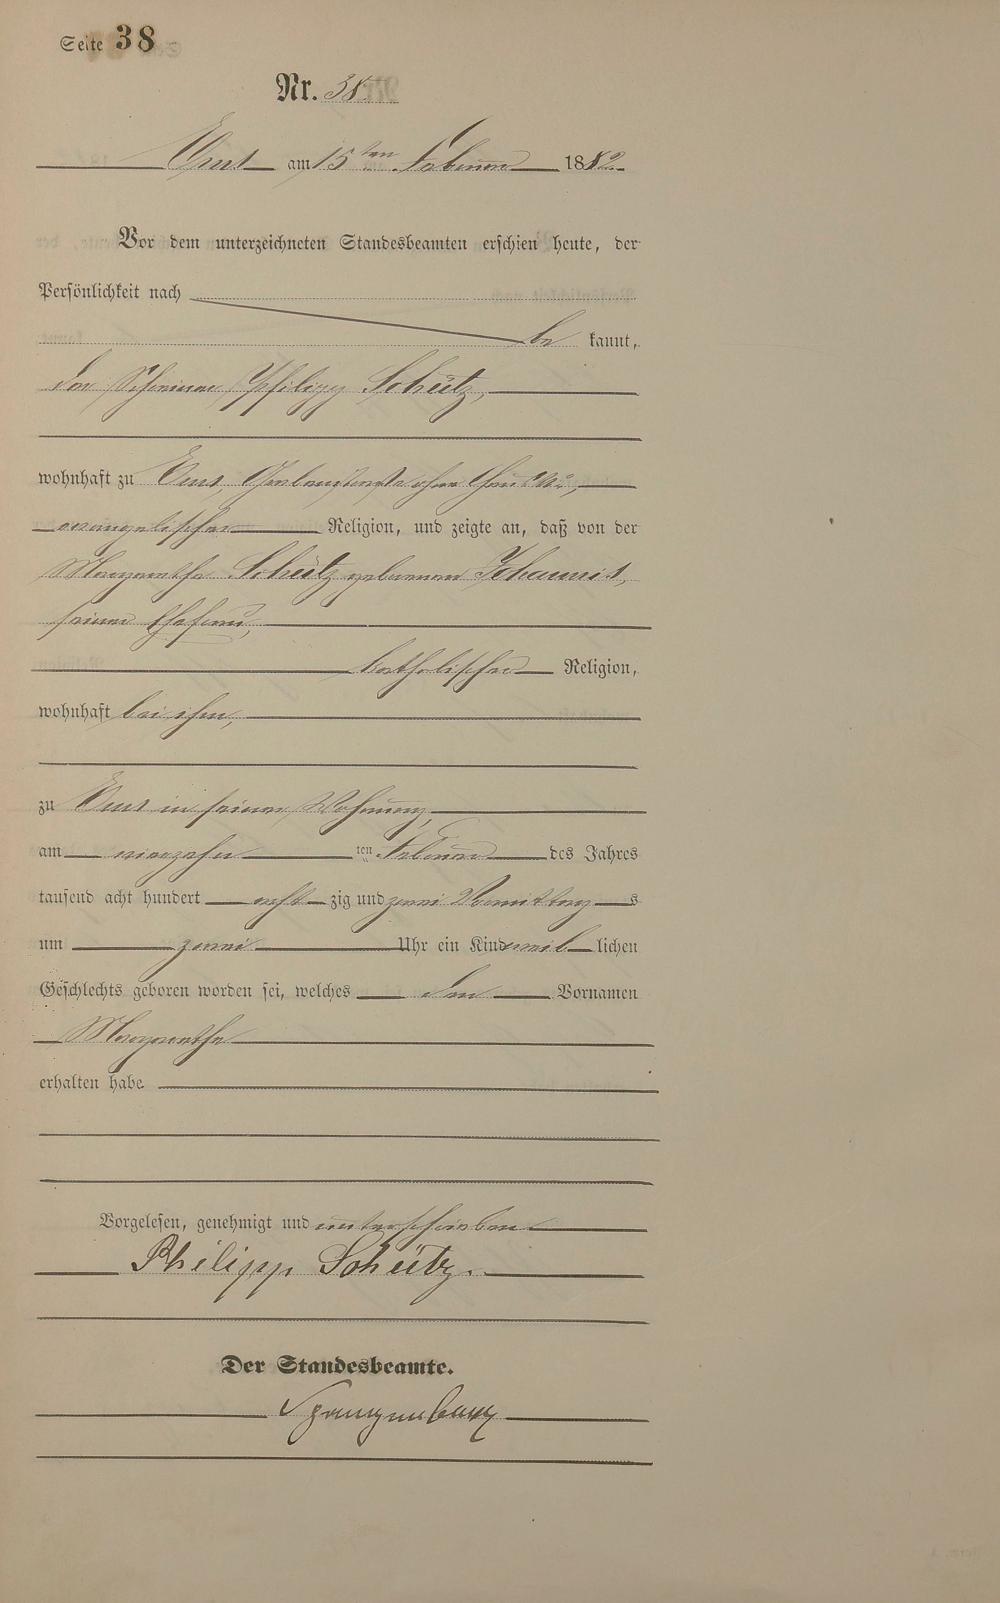 Seite 38
Nr. 38.
Ems am 15ten Februar 1882.
Vor dem unterzeichneten Standesbeamten erschien heute, der
Persönlichkeit nach
be kannt,
den Schreiner Philipp Schütz,
wohnhaft zu Ems,
evangelischer Religion, und zeigte an, daß von der
Margarethe Schütz geborenen Johannis,
seiner Ehefrau,
katholischer Religion,
wohnhaft bei ihm,
zu Ems in seiner Wohnung,
am vierzehn ten Februar des Jahres
tausend acht hundert acht zig und zwei Vormittag s
um zwei Uhr ein Kind weib lichen
Geschlechts geboren worden sei, welches den Vornamen
Margarethe
erhalten habe
Vorgelesen, genehmigt und unterschrieben
Philipp Schütz.
Der Standesbeamte.
Spangenberg